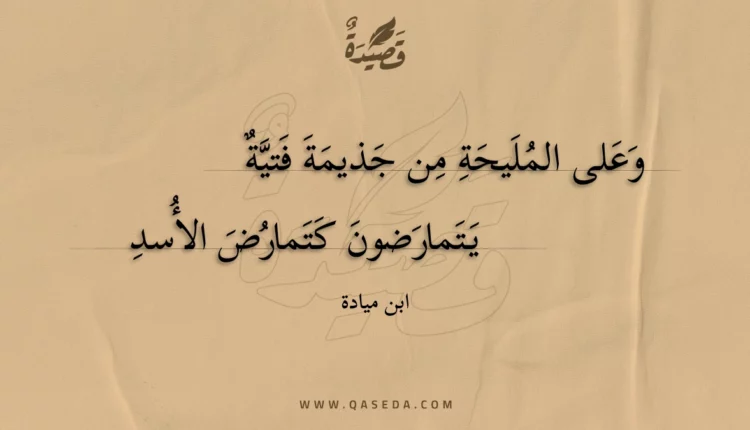 قَصِيدَةٌ
وَعَلى المُلَيحَةِ مِن جَذيمَةَ فَتيَّةٌ
يَتَمارَضونَ كَتَمارُضَ الأُسدِ
ابن ميادة
WWW.QASEDA.COM